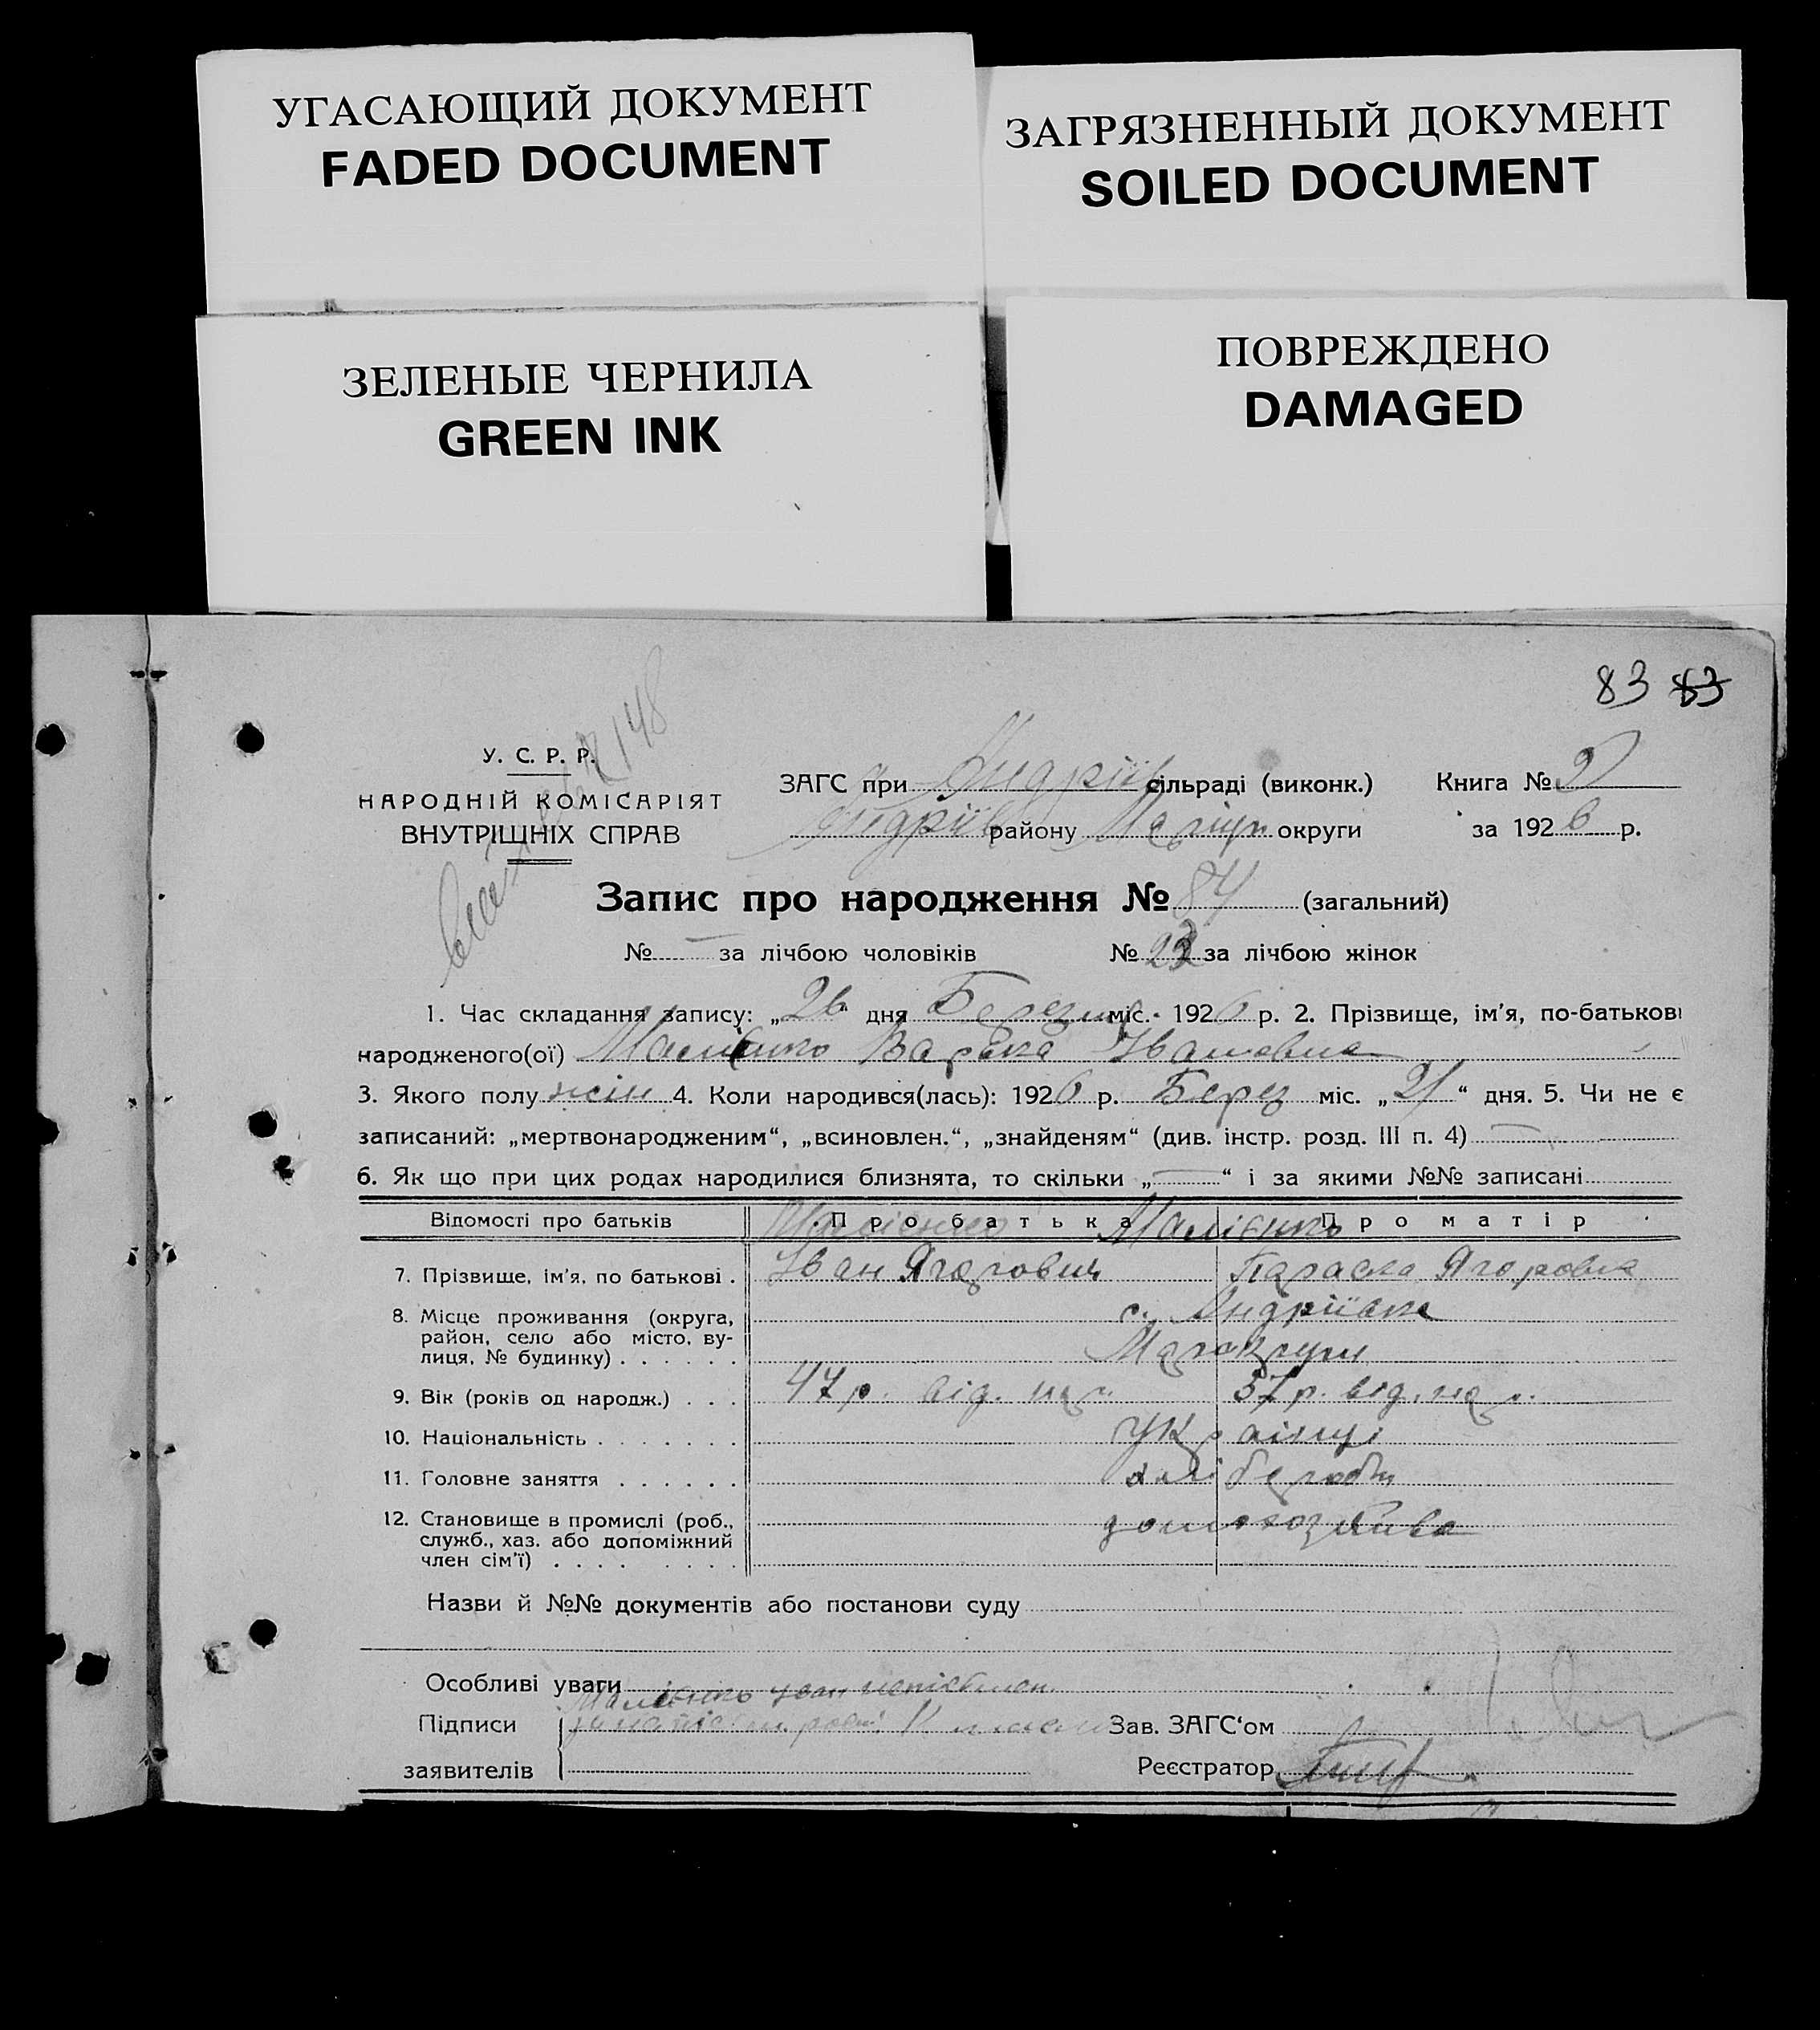 УГАСАЮЩИЙ ДОКУМЕНТ
FADED DOCUMENT
ЗАГРЯЗНЕННЫЙ ДОКУМЕНТ
SOILED DOCUMENT
ЗЕЛЕНЫЕ ЧЕРНИЛА
GREEN INK
ПОВРЕЖДЕНО
DAMAGED
83 83
У. С. Р. Р.
НАРОДНІЙ КОМІСАРІЯТ
ВНУТРІШНІХ СПРАВ
ЗАГС при Андріїв сільраді (виконк.) Книга № 2
Андріїв району Маріуп округи за 1926 р.
Запис про народження № 84 (загальний)
№ — за лічбою чоловіків № за лічбою жінок
1. Час складання запису: „26“ дня Березня міс. 1926 р. 2. Прізвище, ім'я, по-батькові
народженого(ої) Малієнко Варвка Івановна
3. Якого полу жін 4. Коли народився(лась): 1926 р. Берез міс. „21“ дня. 5. Чи не є
записаний: „мертвонародженим“, „всиновлен.“, „знайденям“ (див. інстр. розд. III п. 4) —
6. Як що при цих родах народилися близнята, то скільки „—“ і за якими №№ записані
Відомості про батьків Про батька Про матір
Малієнко Малієнко
7. Прізвище, ім'я, по батькові . Іван Ягорович Параска Ягоровна
8. Місце проживання (округа, с. Андріївка
район, село або місто, ву-
лиця, № будинку) . . . . . .
9. Вік (років од народж.) . . . 47 р. від. нар. 37 р. від. нар.
10. Національність . . . . . . . Українці
11. Головне заняття . . . . . . хліборобы
12. Становище в промислі (роб.,
служб., хаз. або допоміжний
член сім'ї) . . . . . . . .
Назви й №№ документів або постанови суду
Особливі уваги
Малієнко
Підписи Зав. ЗАГС'ом
заявителів Реєстратор